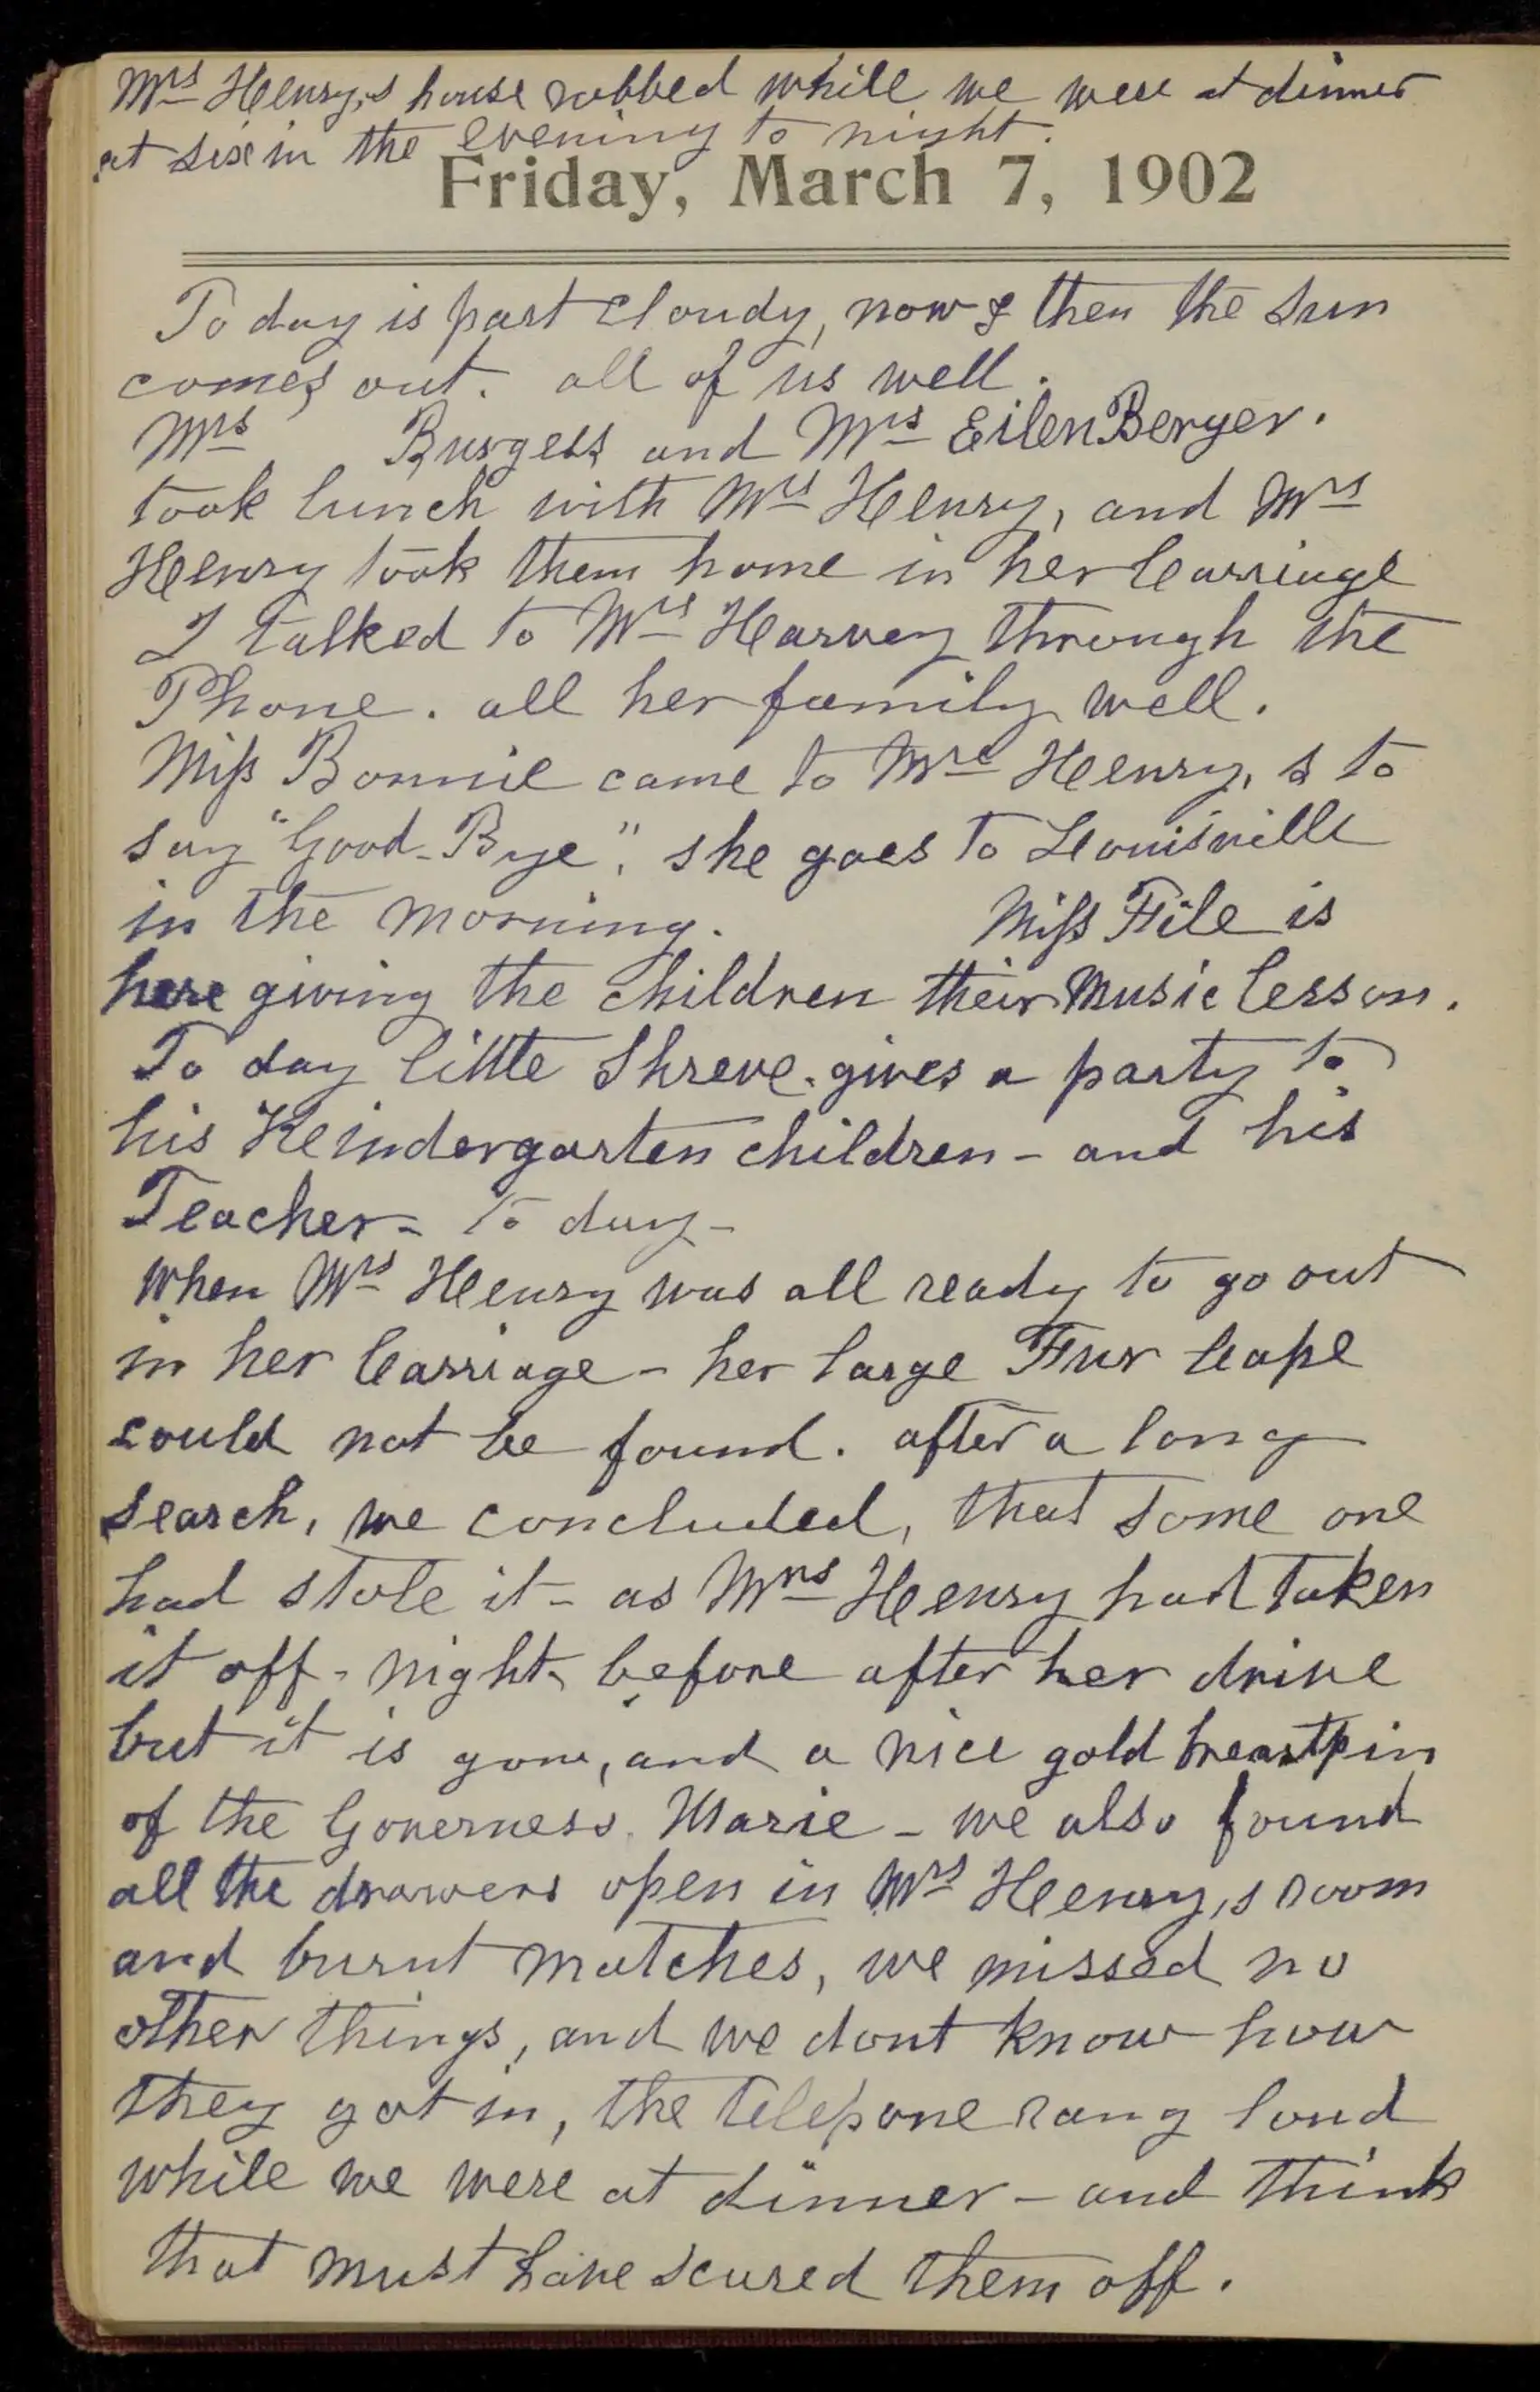 Mrs Henry,s house robbed while we were at dinner
at six in the evening to night.
Friday, March 7, 1902
To day is part cloudy, now & then the sun
comes out. all of us well.
Mrs Burgess and Mrs EilenBerger.
took lunch with Mrs Henry, and Mrs
Henry took them home in her Carriage
I talked to Mrs Harvey through the
Phone. all her family well.
Miss Bonnie came to Mrs Henry,s to
say "Good-Bye", she goes to Louisville
in the morning. Miss File is
here giving the children their music lesson.
To day little Shreve. gives a party to
his Keindergarten children - and his
Teacher - to day -
When Mrs Henry was all ready to go out
in her Carriage - her large Fur Cape
could not be found. after a long
search, we concluded, that some one
had stole it - as Mrs Henry had taken
it off - night before after her drive
but it is gone, and a nice gold breastpin
of the Governess Marie - we also found
all the drawers open in Mrs Henry,s room
and burnt matches, we missed no
other things, and we dont know how
they got in, the telepone rang loud
while we were at dinner - and think
that must have scared them off.